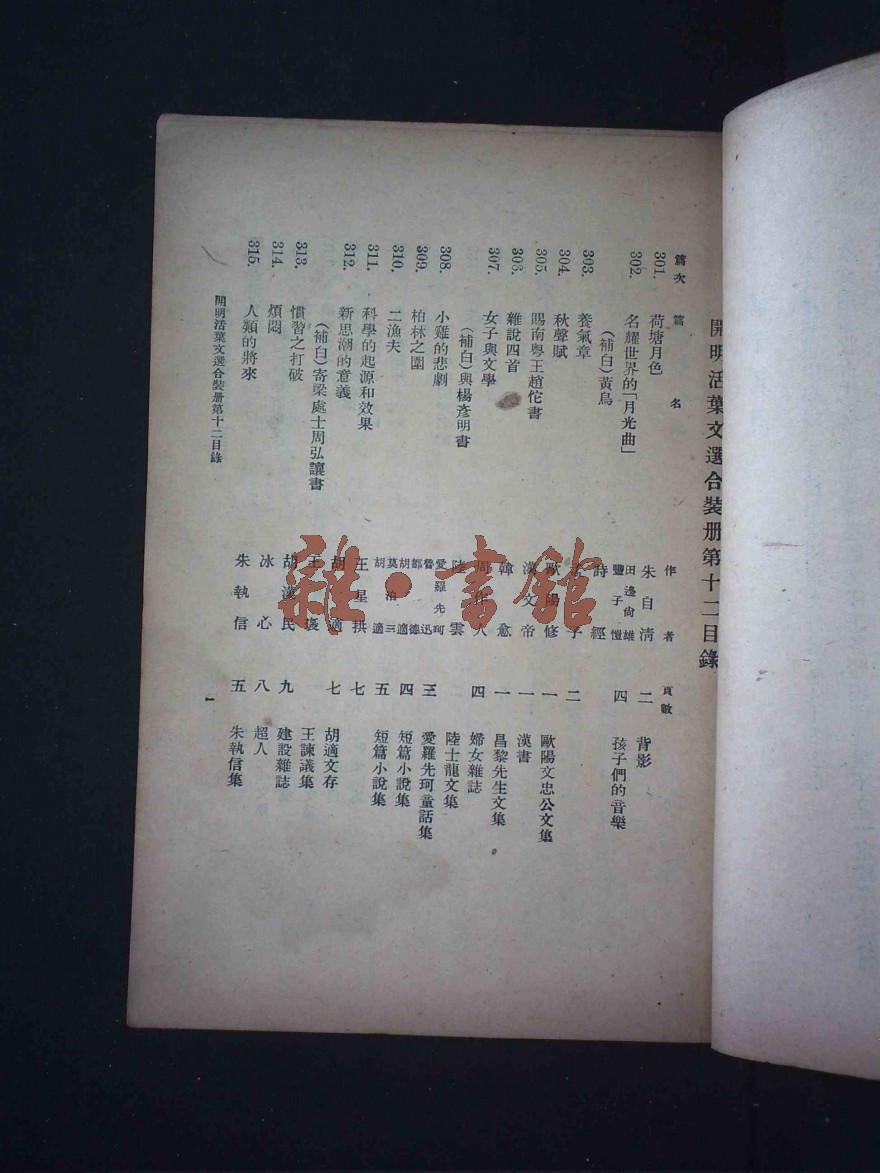 開明活葉文選合裝册第十二目錄
篇次 篇名 作者 頁數
301. 荷塘月色 朱自清 二 背影
302. 名耀世界的「月光曲」 田邊尚雄 豐子愷 四 孩子們的音樂
(補白)黃鳥 詩經
303. 養氣章 孟子 二
304. 秋聲賦 歐陽修 一 歐陽文忠公文集
305. 賜南粵王趙佗書 漢文帝 一 漢書
306. 雜說四首 韓愈 一 昌黎先生文集
307. 女子與文學 周作人 四 婦女雜誌
(補白)與楊彥明書 陸雲 陸士龍文集
308. 小雞的悲劇 愛羅先珂 魯迅 三 愛羅先珂童話集
309. 柏林之圍 都德 胡適 四 短篇小說集
310. 二漁夫 莫泊三 胡適 五 短篇小說集
311. 科學的起源和效果 王星拱 七
312. 新思潮的意義 胡適 七 胡適文存
(補白)寄梁處士周弘讓書 王褒 王諫議集
313. 慣習之打破 胡漢民 九 建設雜誌
314. 煩悶 冰心 八 超人
315. 人類的將來 朱執信 五 朱執信集
開明活葉文選合裝册第十二目錄 一
雜·書館